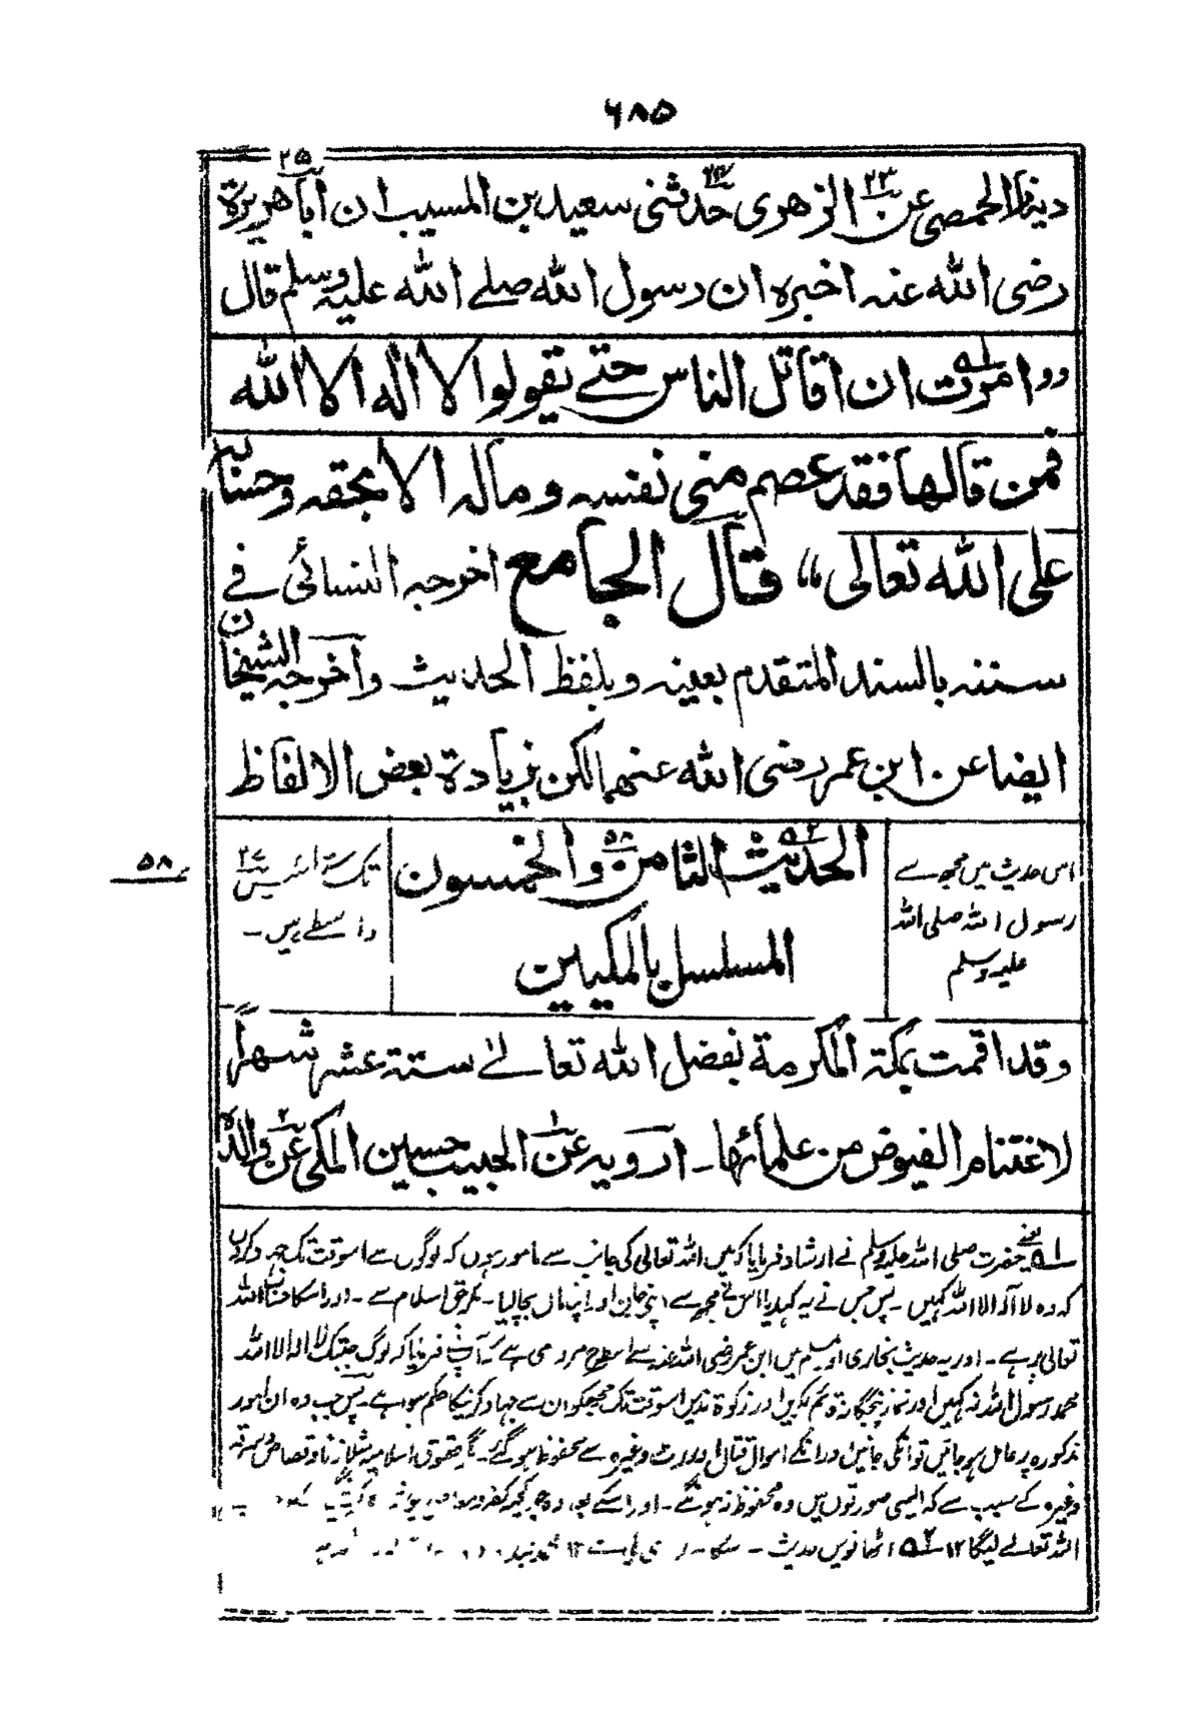 ۶۸۵
دينار الحمصى عن الزهرى حدثنى سعيد بن المسيب ان ابا هريرة
۲۳ ۲۴ ۲۵
رضى الله عنه اخبره ان رسول الله صلے الله عليه وسلم قال
،،امرت ان اقاتل الناس حتے يقولوا لا اله الا الله
فمن قالها فقد عصم منى نفسه وماله الا بحقه وحسابه
على الله تعالى،، قال الجامع اخرجه النسائى فے
سننه بالسند المتقدم بعينه وبلفظ الحديث واخرجه الشيخان
ايضا عن ابن عمر رضى الله عنهما لكن بزيادة بعض الالفاظ
اس حدیث میں مجھ سے
رسول اللہ صلی اللہ
علیہ وسلم
الحديث الثامن والخمسون
۵۸
المسلسل بالمكيين
تک ستائیس
۲۷
واسطے ہیں۔
۵۸
وقد اقمت بمكة المكرمة بفضل الله تعالےٰ ستة عشر شهراً
لاغتنام الفيوض من علمائها۔ ارويه عن الحبيب حسين المكى عن والده
۱ ۲
۱ یعنے حضرت صلی اللہ علیہ وسلم نے ارشاد فرمایا کہ میں اللہ تعالی کی جانب سے مامور ہوں کہ لوگوں سے اسوقت تک جہاد کروں
کہ وہ لا الہ الا اللہ کہیں۔ پس جس نے یہ کہدیا اس نے مجھ سے اپنی جان اور اپنا مال بچا لیا۔ مگر حق اسلام سے۔ اور اسکا حساب اللہ
تعالی پر ہے۔ اور یہ حدیث بخاری اور مسلم میں ابن عمر رضی اللہ عنہ سے اسطرح مروی ہے کہ آپ نے فرمایا کہ لوگ جبتک لا الہ الا اللہ
محمد رسول اللہ نہ کہیں اور نماز پنجگانہ قائم نکریں اور زکوۃ ندیں اسوقت تک مجھکو ان سے جہاد کرنیکا حکم ہوا ہے۔ پس جب وہ ان امور
مذکورہ پر عامل ہو جائیں تو انکی جانیں اور انکے اموال قتال اور لوٹ وغیرہ سے محفوظ ہو گئے۔ مگر حقوق اسلامیہ مثلاً زنا و قصاص و سرقہ
وغیرہ کے سبب سے کہ ایسی صورتوں میں وہ محفوظ نہ ہونگے۔ اور اسکے بعد وہ جو کچھ
اللہ تعالے لیگا ۱۲ ۲ اٹھانویں حدیث۔